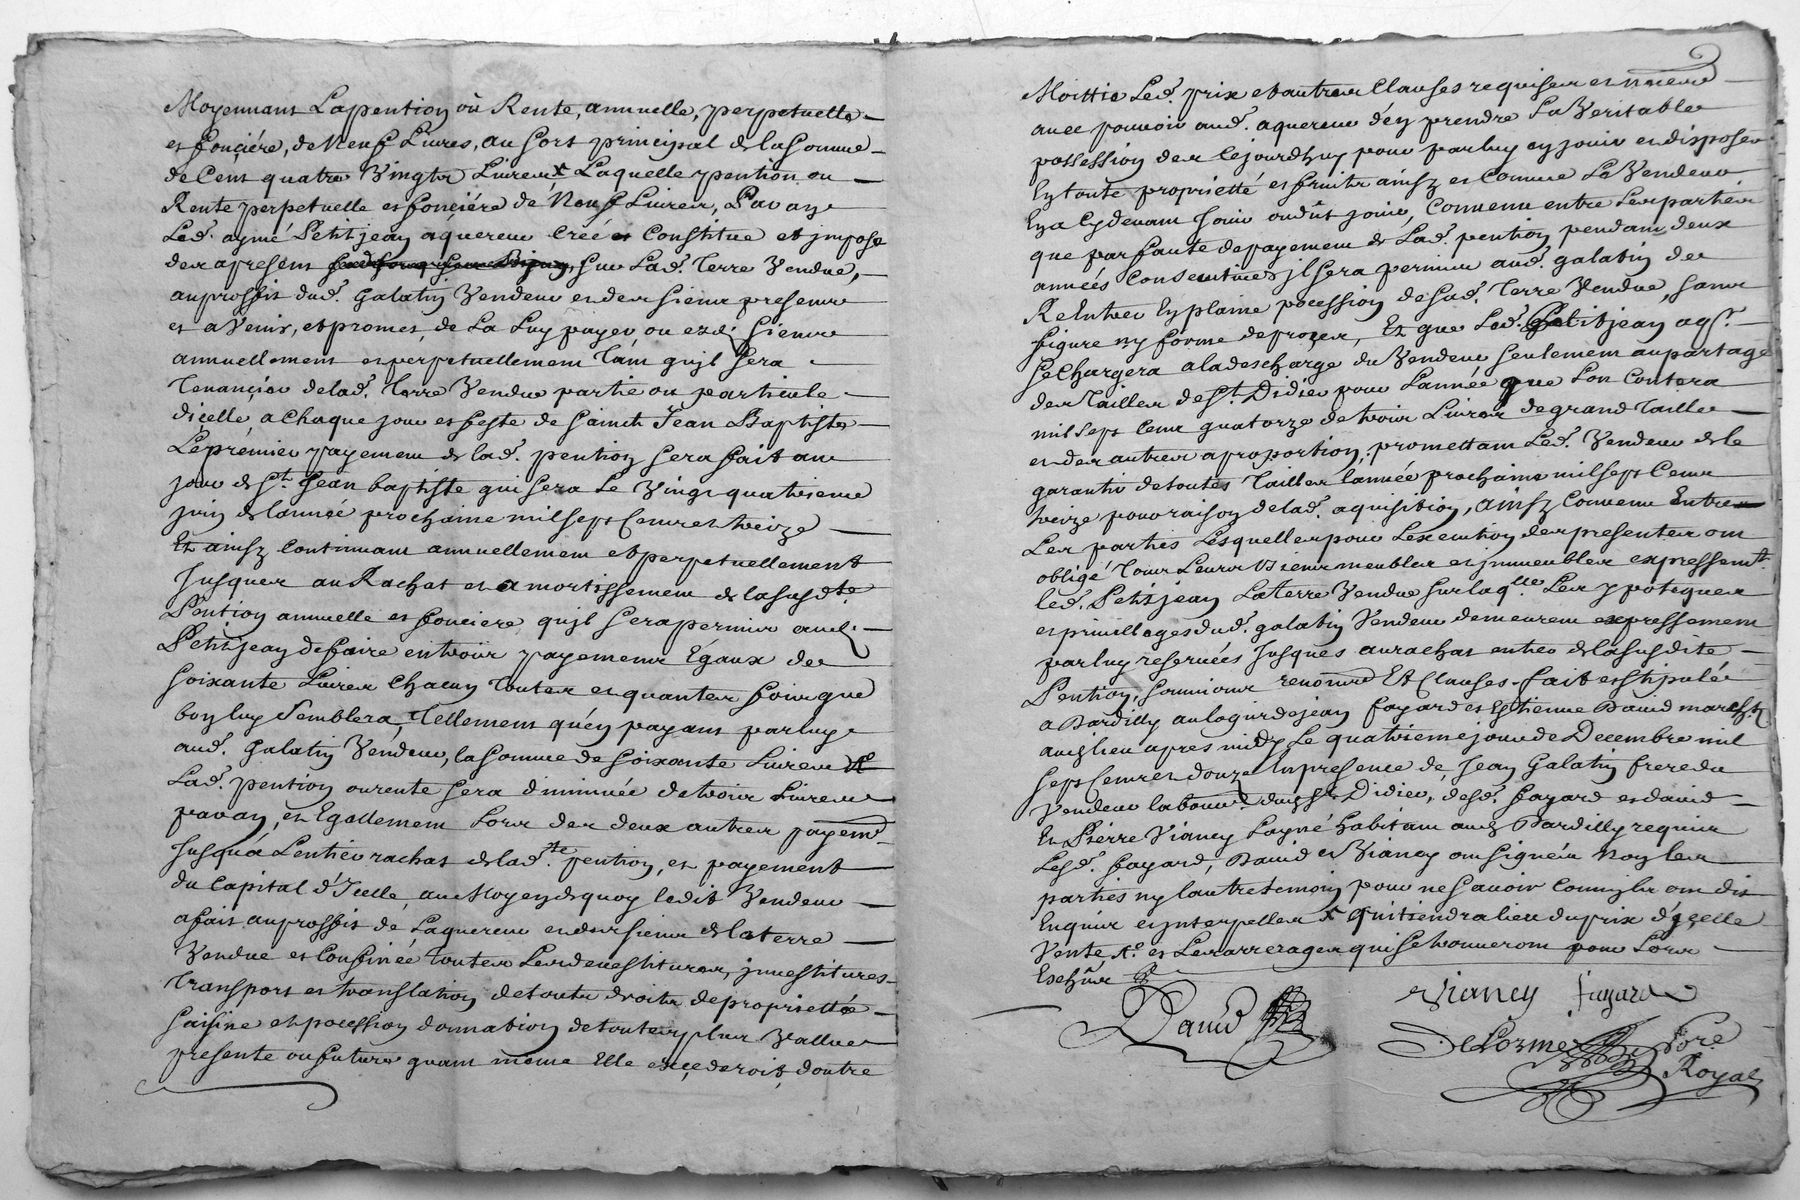 Moyennant Lapention où Rente, annuelle, perpetuelle
et fonçiére, de Neuf Livres, au sort principal de la somme
de Cent quatre Vingtz Livres Laquelle pention ou
Rente perpetuelle et fonçiére de Neuf Livres,
Led. aymé Petitjean aquereur Créé et Constitue et jmpose
des apresent sur Lad. Terre Vendue,
au proffit dud. Galatin Vendeur et des siens presens
et a Venir, et promet de La Luy payer ou ezd. siens
annuellement et perpetuellement Tant qujl sera
Tenançier de lad. Terre Vendue partie ou particule
dicelle, a Chaque jour et feste de sainct Jean Baptiste
Le premier payement de lad. pention sera fait au
jour de St. Jean baptiste qui sera Le Vingt quatrieme
juin de lannée prochaine mil sept Cents treize
Et ainsy Continuant annuellement et perpetuellement
Jusques au Rachat et amortissement de la susdte.
Pention annuelle et fonciere qujl sera permis aud.
Petitjean de faire en trois payements Egaux de
soixante Livres Chacun toutes et quantes fois que
bon luy semblera, Tellement qu'en payant par luy
aud. Galatin Vendeur, la somme de soixante Livres
Lad. pention ou rente sera diminuée de trois Livres
pavan, et Egallement Lors des deux autres payemt.
Jusqua Lentier rachat de lad.te pention, et payement
du Capital d'Icelle, au Moyen de quoy ledit Vendeur
a fait au proffit de Laquereur et des siens de la terre
Vendue et Confinée toutes Les devestitures, jnvestitures
Transport et translation de touts droits de proprietté
saisine et pocession donnation de toute plus Vallue
presente ou future quant même Elle exçederoit, doutre
Moittie Led. prix et autres Clauses requises et
avec pouvoir aud. aquereur d'en prendre La Veritable
possession des Cejourdhuy pour par luy en jouir et disposer
En toute proprietté et fruits ainsy et Comme Le Vendeur
En a Cy devant Jouir ou dût jouir, Convenu entre Les parties
que par faute de payement de Lad. pention pendant deux
années Consecutives jl sera permis aud. galatin de
Rentrer En plaine pocession de Lad. Terre Vendue, sans
figure ny forme de proces, Et que Led. Petitjean aqr.
se Chargera a la descharge du Vendeur seulement au partage
des Tailles de St. Didier pour Lannée que Lon Contera
mil sept Cent quatorze de trois Livres de grand Taille
et des autres a proportion, promettant Led. Vendeur de le
garantir de toutes Tailles lannée prochaine mil sept Cent
treize pour raison de lad. aquisition, ainsy Convenu Entre
Les parties Lesquelles pour Lexecution des presentes ont
obligé Tous Leurs biens meubles et jmmeubles expressemt.
led. Petitjean La terre Vendue sur laqlle. Les ypoteques
et privillages dud. galatin Vendeur demeurent expressement
par luy reservées Jusques au rachat entier de la susdite
Pention, soumions renonce Et Clauses, fait et stipulé
a Dardilly au logis de jean fayard et Estienne David march.
aud. lieu apres midy Le quatrieme jour de Decembre mil
sept Cents douze En presence de Jean Galatin frere du
Vendeur labour. dud. St. Didier, desd. fayard et david
Et Pierre Vianey Layné habitant aud. Dardilly requis
Lesd. fayard, David et Vianey ont signéu Non les
parties ny lautre temoin pour ne savoir Comm'jls ont dit
Enquis et jnterpelles x qui tiendra lieu du prix d'içelle
Vente, x. et Les arrerages qui se trouveront pour Lors
Eschûs
David Vianey fayard
Delorme Nore.
Royal